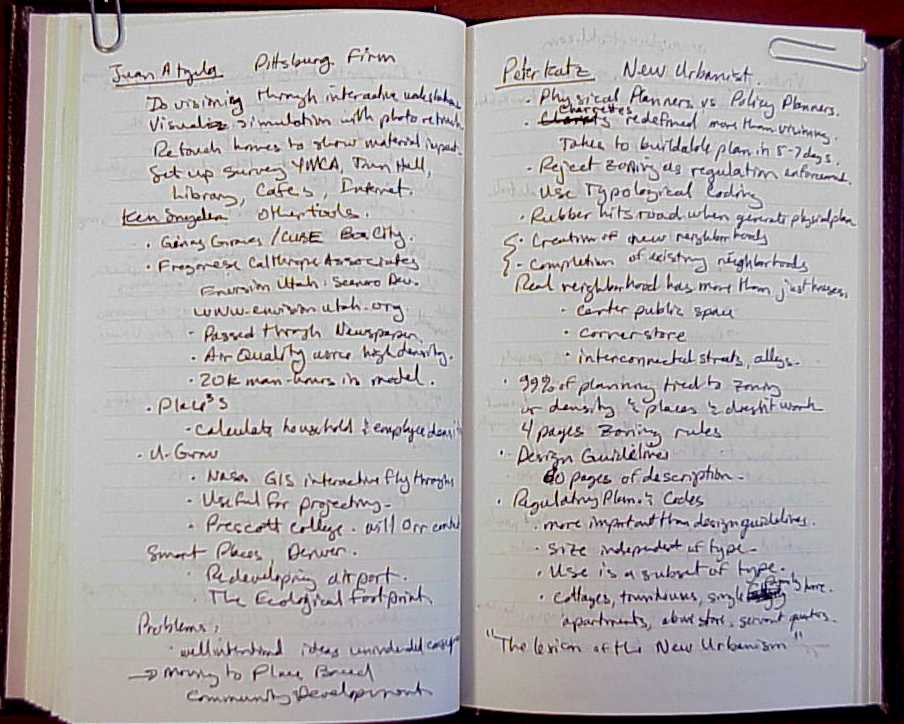 Juan Pittsburg Firm
Do visioning through interactive
Visualize simulation with photo retouch
Retouch homes to show material impact.
Set up survey YMCA, Town Hall,
Library, Cafes, Internet.
Ken Snyder Other tools.
· / CUBE Box City.
· Fregonese Calthrope Associates
Envision Utah: Dev.
www.envisionutah.org
· Passed through Newspaper
· Air Quality worse high density.
· 20k man-hours in model.
· Place³s
· Calculate household & employee
· U-Grow
· Nasa GIS interactive fly through
· Useful for projecting.
· Prescott College. will Orr
Smart Places Denver.
· Redeveloping airport.
· The Ecological Footprint
Problems:
· well intentioned ideas unintended
→ Moving to Place Based
Community Development
Peter Katz New Urbanist.
· Physical Planners vs Policy Planners.
· Charrettes redefined more than visioning.
Takes to buildable plan in 5-7 days.
· Reject zoning as regulation enforcement.
· Use Typological Coding
· Rubber hits road when generate physical plan
· Creation of new neighborhoods
· Completion of existing neighborhoods
Real neighborhood has more than just houses,
· center public space
· corner store
· interconnected streets, alleys.
· 99% of planning tied to zoning
or density & places & doesn't work
4 pages zoning rules
· Design Guidelines
60 pages of description.
· Regulating Plan & Codes
· more important than design guidelines.
· Size independent of type.
· Use is a subset of type.
· cottages, townhouses, single family home.
apartments, above store, servant quarters.
"The lexicon of the New Urbanism"